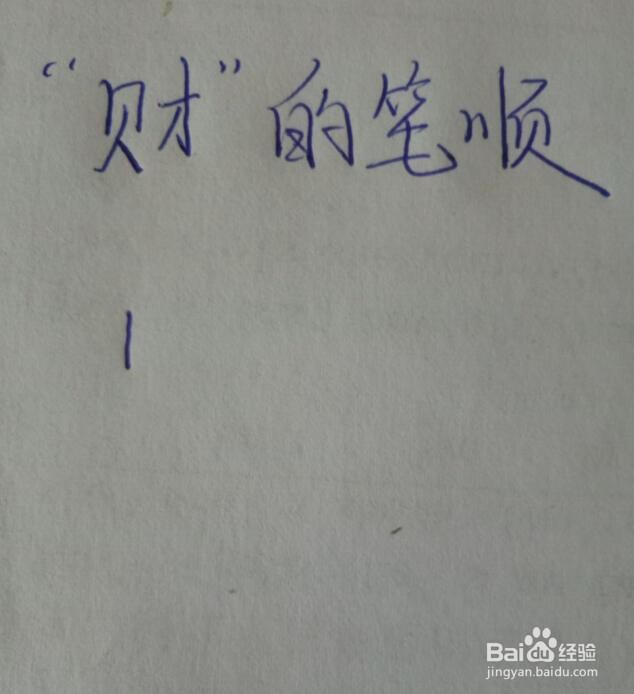 “财”的笔顺
丨
Baidu经验
jingyan.baidu.com